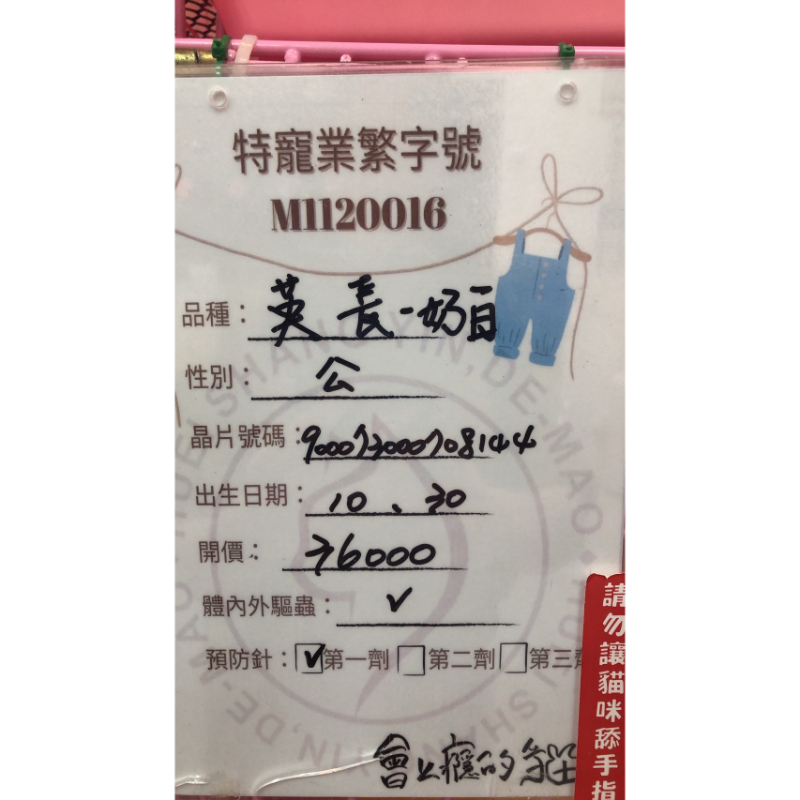 特寵業繁字號
M1120016
品種：英長-奶百
性別：公
晶片號碼：900073000708144
出生日期：10、30
開價：36000
體內外驅蟲：✓
預防針：☑第一劑 ☐第二劑 ☐第三劑
會上癮的
請勿讓貓咪舔手指